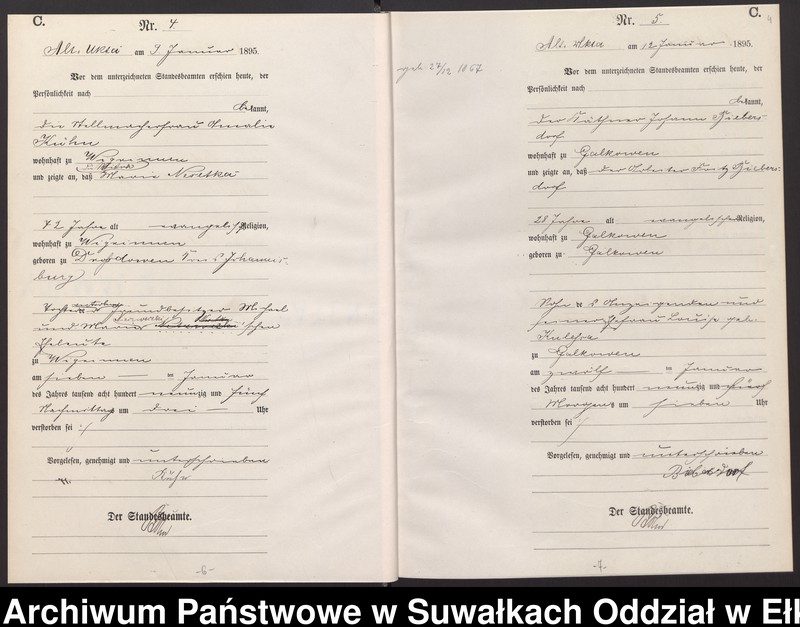 C.
Nr. 4
Alt. Ukta am 9 Januar 1895.
Vor dem unterzeichneten Standesbeamten erschien heute, der
Persönlichkeit nach
bekannt,
die Stellmacherfrau Amalie
Kühn
wohnhaft zu Wigrinnen
und zeigte an, daß Marie
72 Jahre alt evangelischer Religion,
wohnhaft zu Wigrinnen
geboren zu Kreis Johannis-
burg
Tochter Grundbesitzer Michael
und Marie schen
Eheleute
zu Wigrinnen
am sieben im Januar
des Jahres tausend acht hundert neunzig und fünf
Nachmittags um drei Uhr
verstorben sei :/
Vorgelesen, genehmigt und unterschrieben
Kühn
Der Standesbeamte.
-6-
C.
4
Nr. 5.
Alt. Ukta am 12 Januar 1895.
geb. 27/12 1867
Vor dem unterzeichneten Standesbeamten erschien heute, der
Persönlichkeit nach
bekannt,
der Käthner Johann Biebers-
dorf
wohnhaft zu Galkowen
und zeigte an, daß der Arbeiter Fritz Biebers-
dorf
28 Jahre alt evangelischer Religion,
wohnhaft zu Galkowen
geboren zu Galkowen
Sohn des Anzeigenden und
seiner Ehefrau Louise geb.
zu Galkowen
am zwölf im Januar
des Jahres tausend acht hundert neunzig und fünf
Morgens um sieben Uhr
verstorben sei
Vorgelesen, genehmigt und unterschrieben
Der Standesbeamte.
-7-
Archiwum Państwowe w Suwałkach Oddział w Ełk